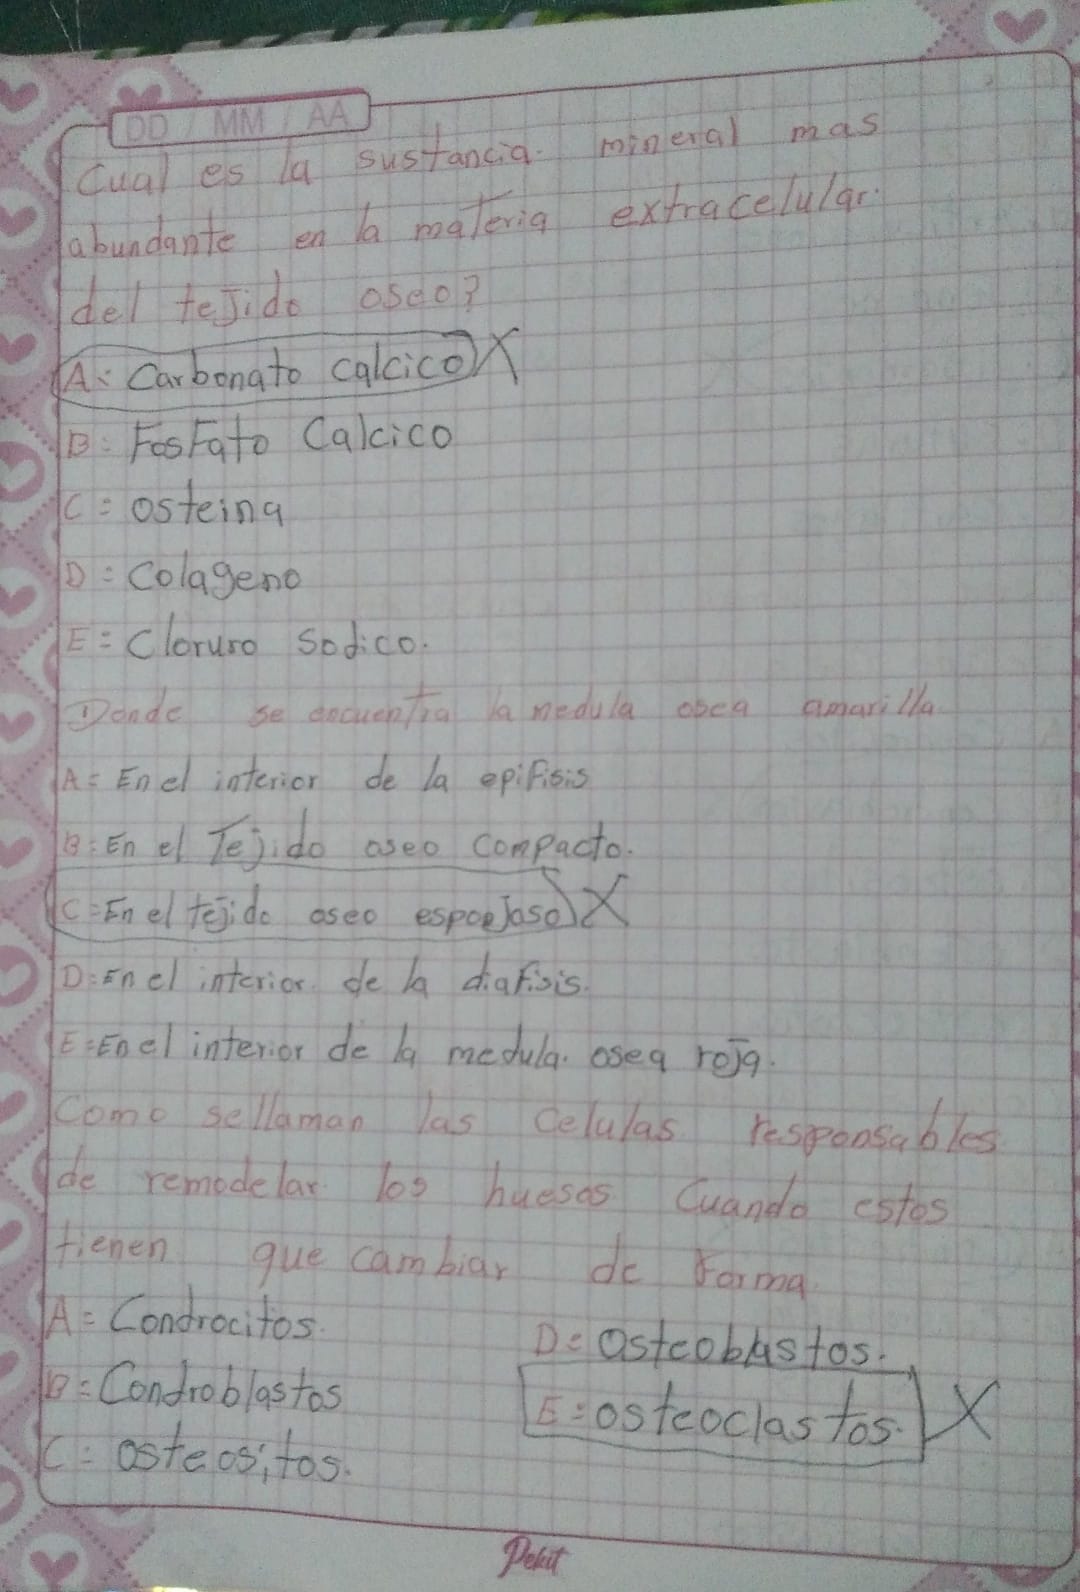 DD / MM / AA
Cual es la sustancia mineral mas
abundante en la materia extracelular
del tejido oseo?
A: Carbonato calcico X
B: Fosfato Calcico
C = osteina
D = Colageno
E = Cloruro Sodico.
Donde se encuentra la medula osea amarilla
A = En el interior de la epifisis
B: En el Tejido oseo Compacto.
C = En el tejido oseo esponjoso X
D: En el interior de la diafisis.
E = En el interior de la medula osea roja.
Como sellaman las Celulas responsables
de remodelar los huesos Cuando estos
tienen que cambiar de Forma
A = Condrocitos.
B = Condroblastos
C = osteositos.
D = Osteoblastos.
E = osteoclastos. X
Pekit